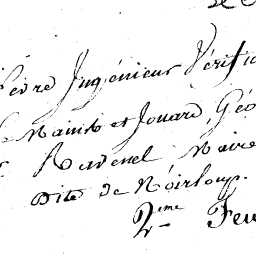 Ingénieur Vérifi
et Jouard, Géo
Ravenel Maire
dite de Noirloup.
2eme Feu